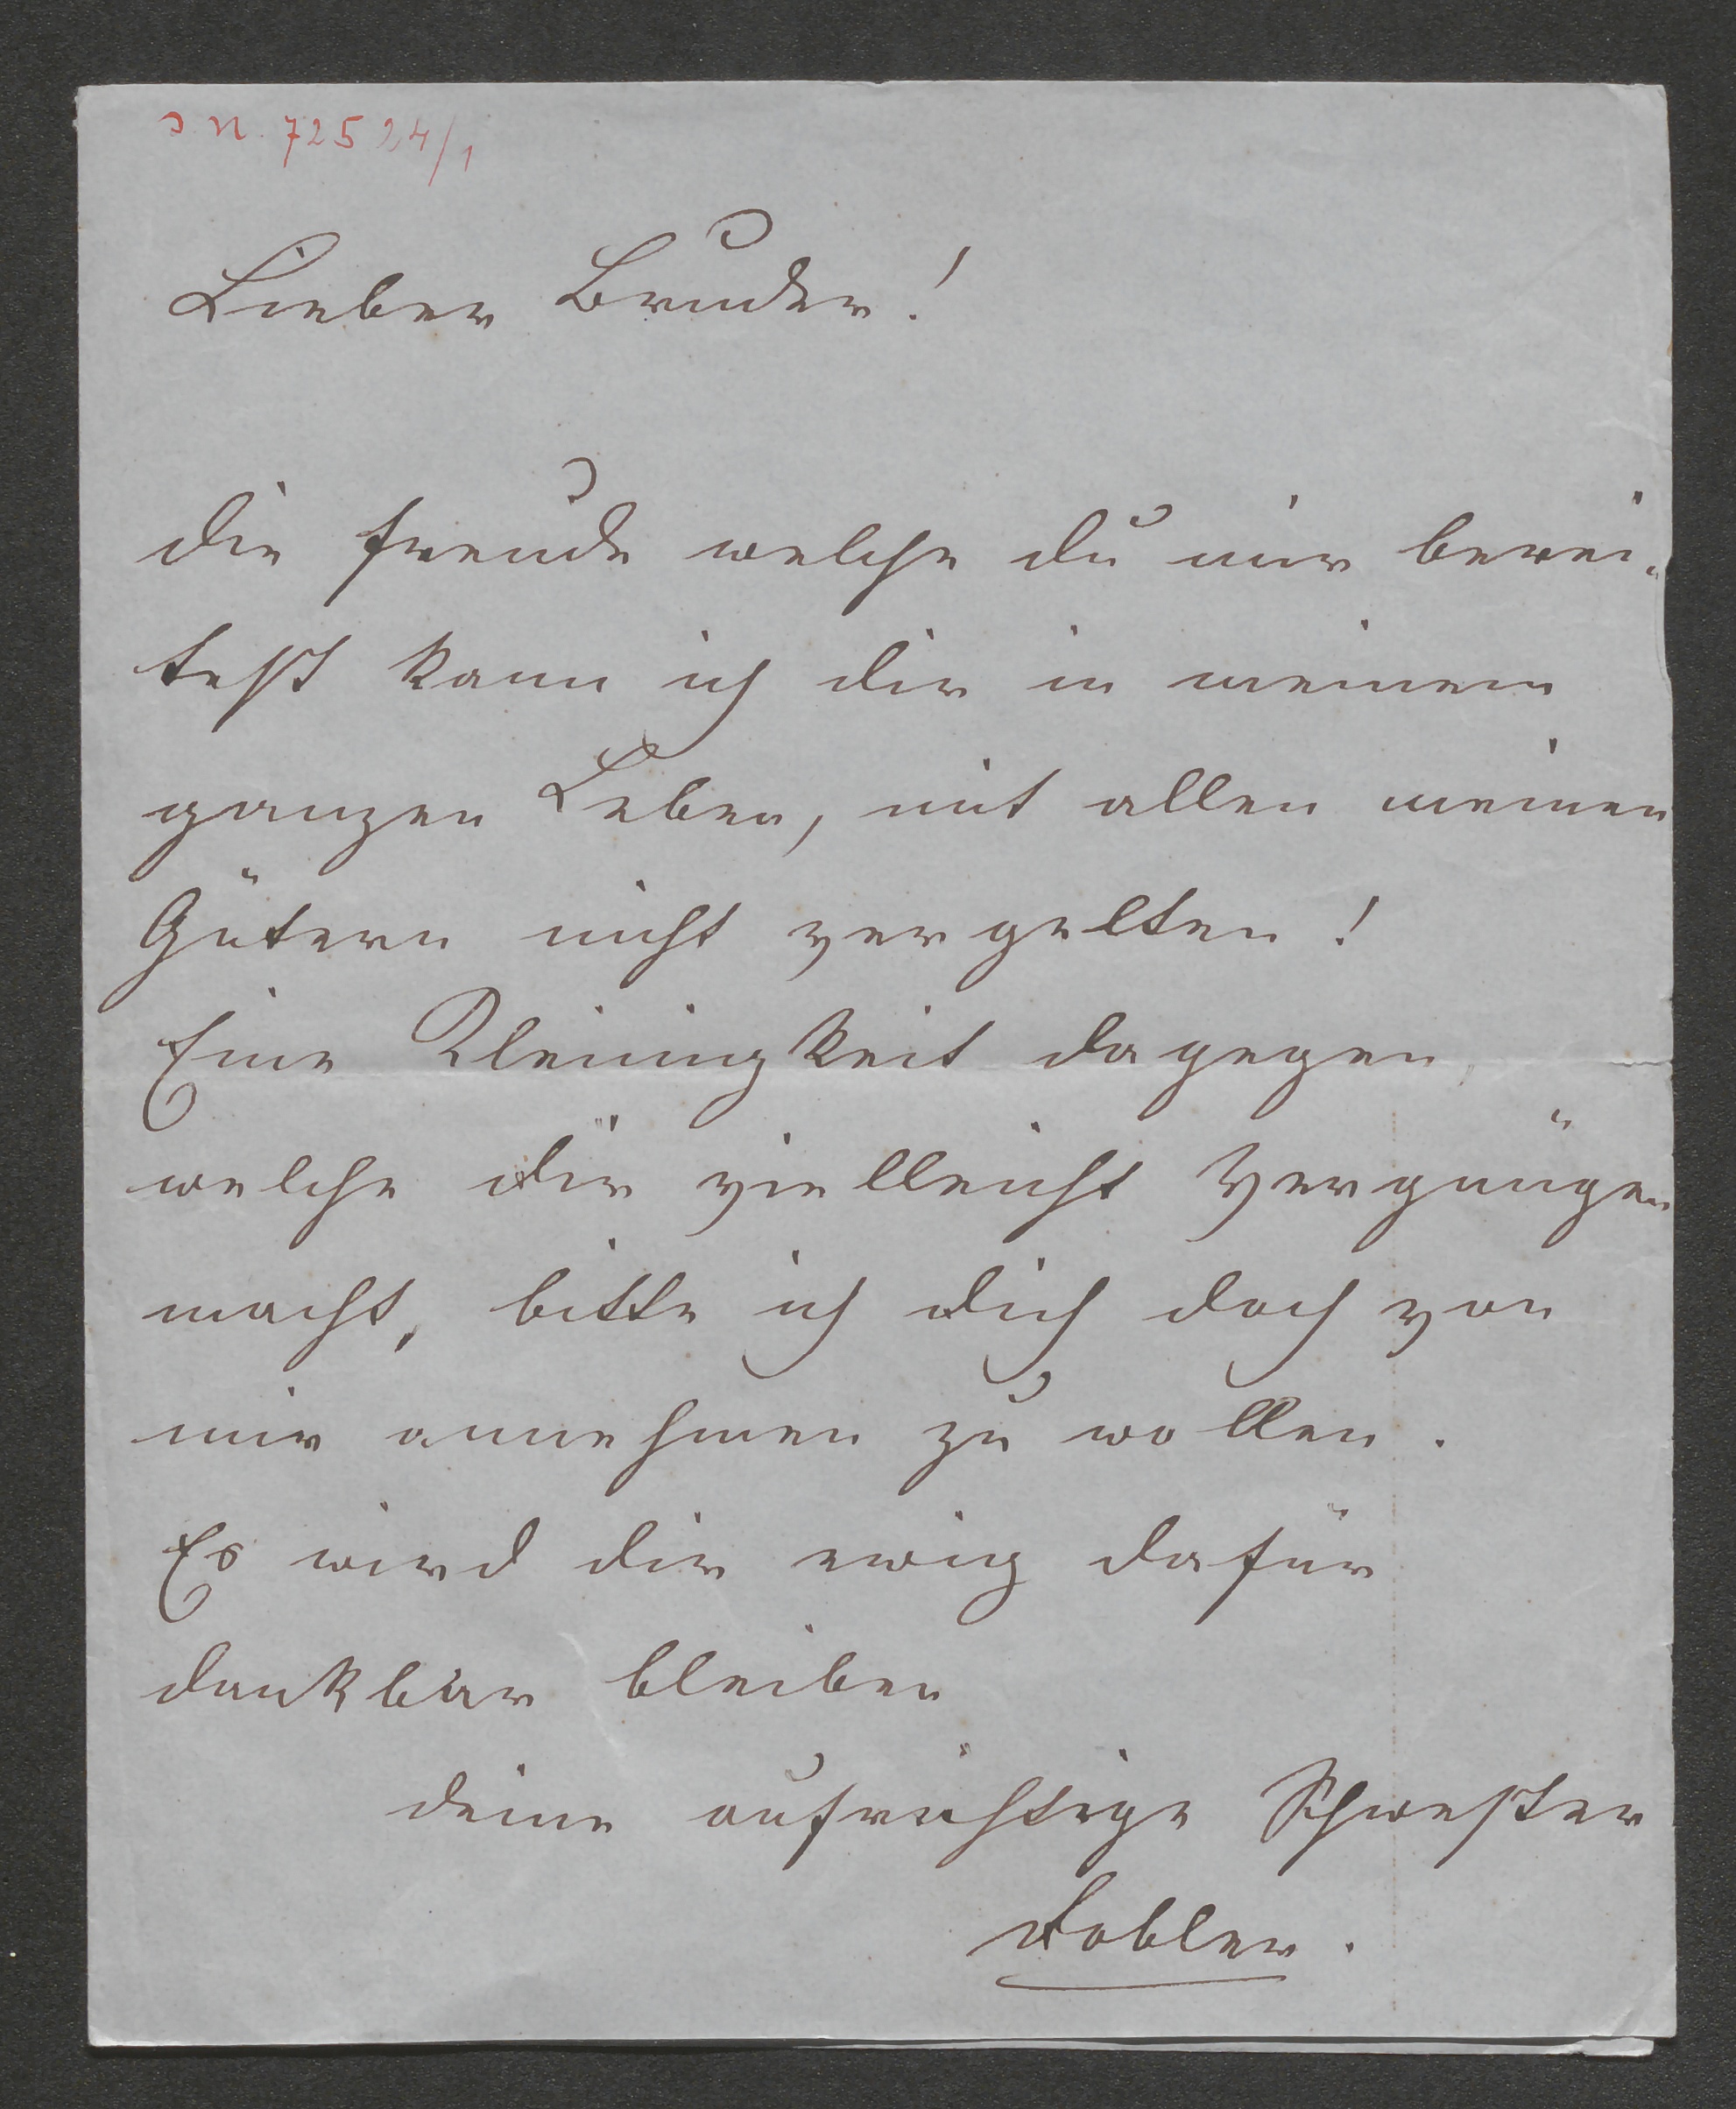 J.N. 72524/1
Lieber Bruder!
die Freude welche du mir berei-
test kann ich dir in meinem
ganzen Leben, mit allen meinen
Gütern nicht vergelten!
Eine Kleinigkeit dagegen,
welche dir vielleicht Vergnügen
macht, bitte ich dich doch von
mir annehmen zu wollen.
Es wird dir ewig dafür
dankbar bleiben
deine aufrichtige Schwester
Dobler.